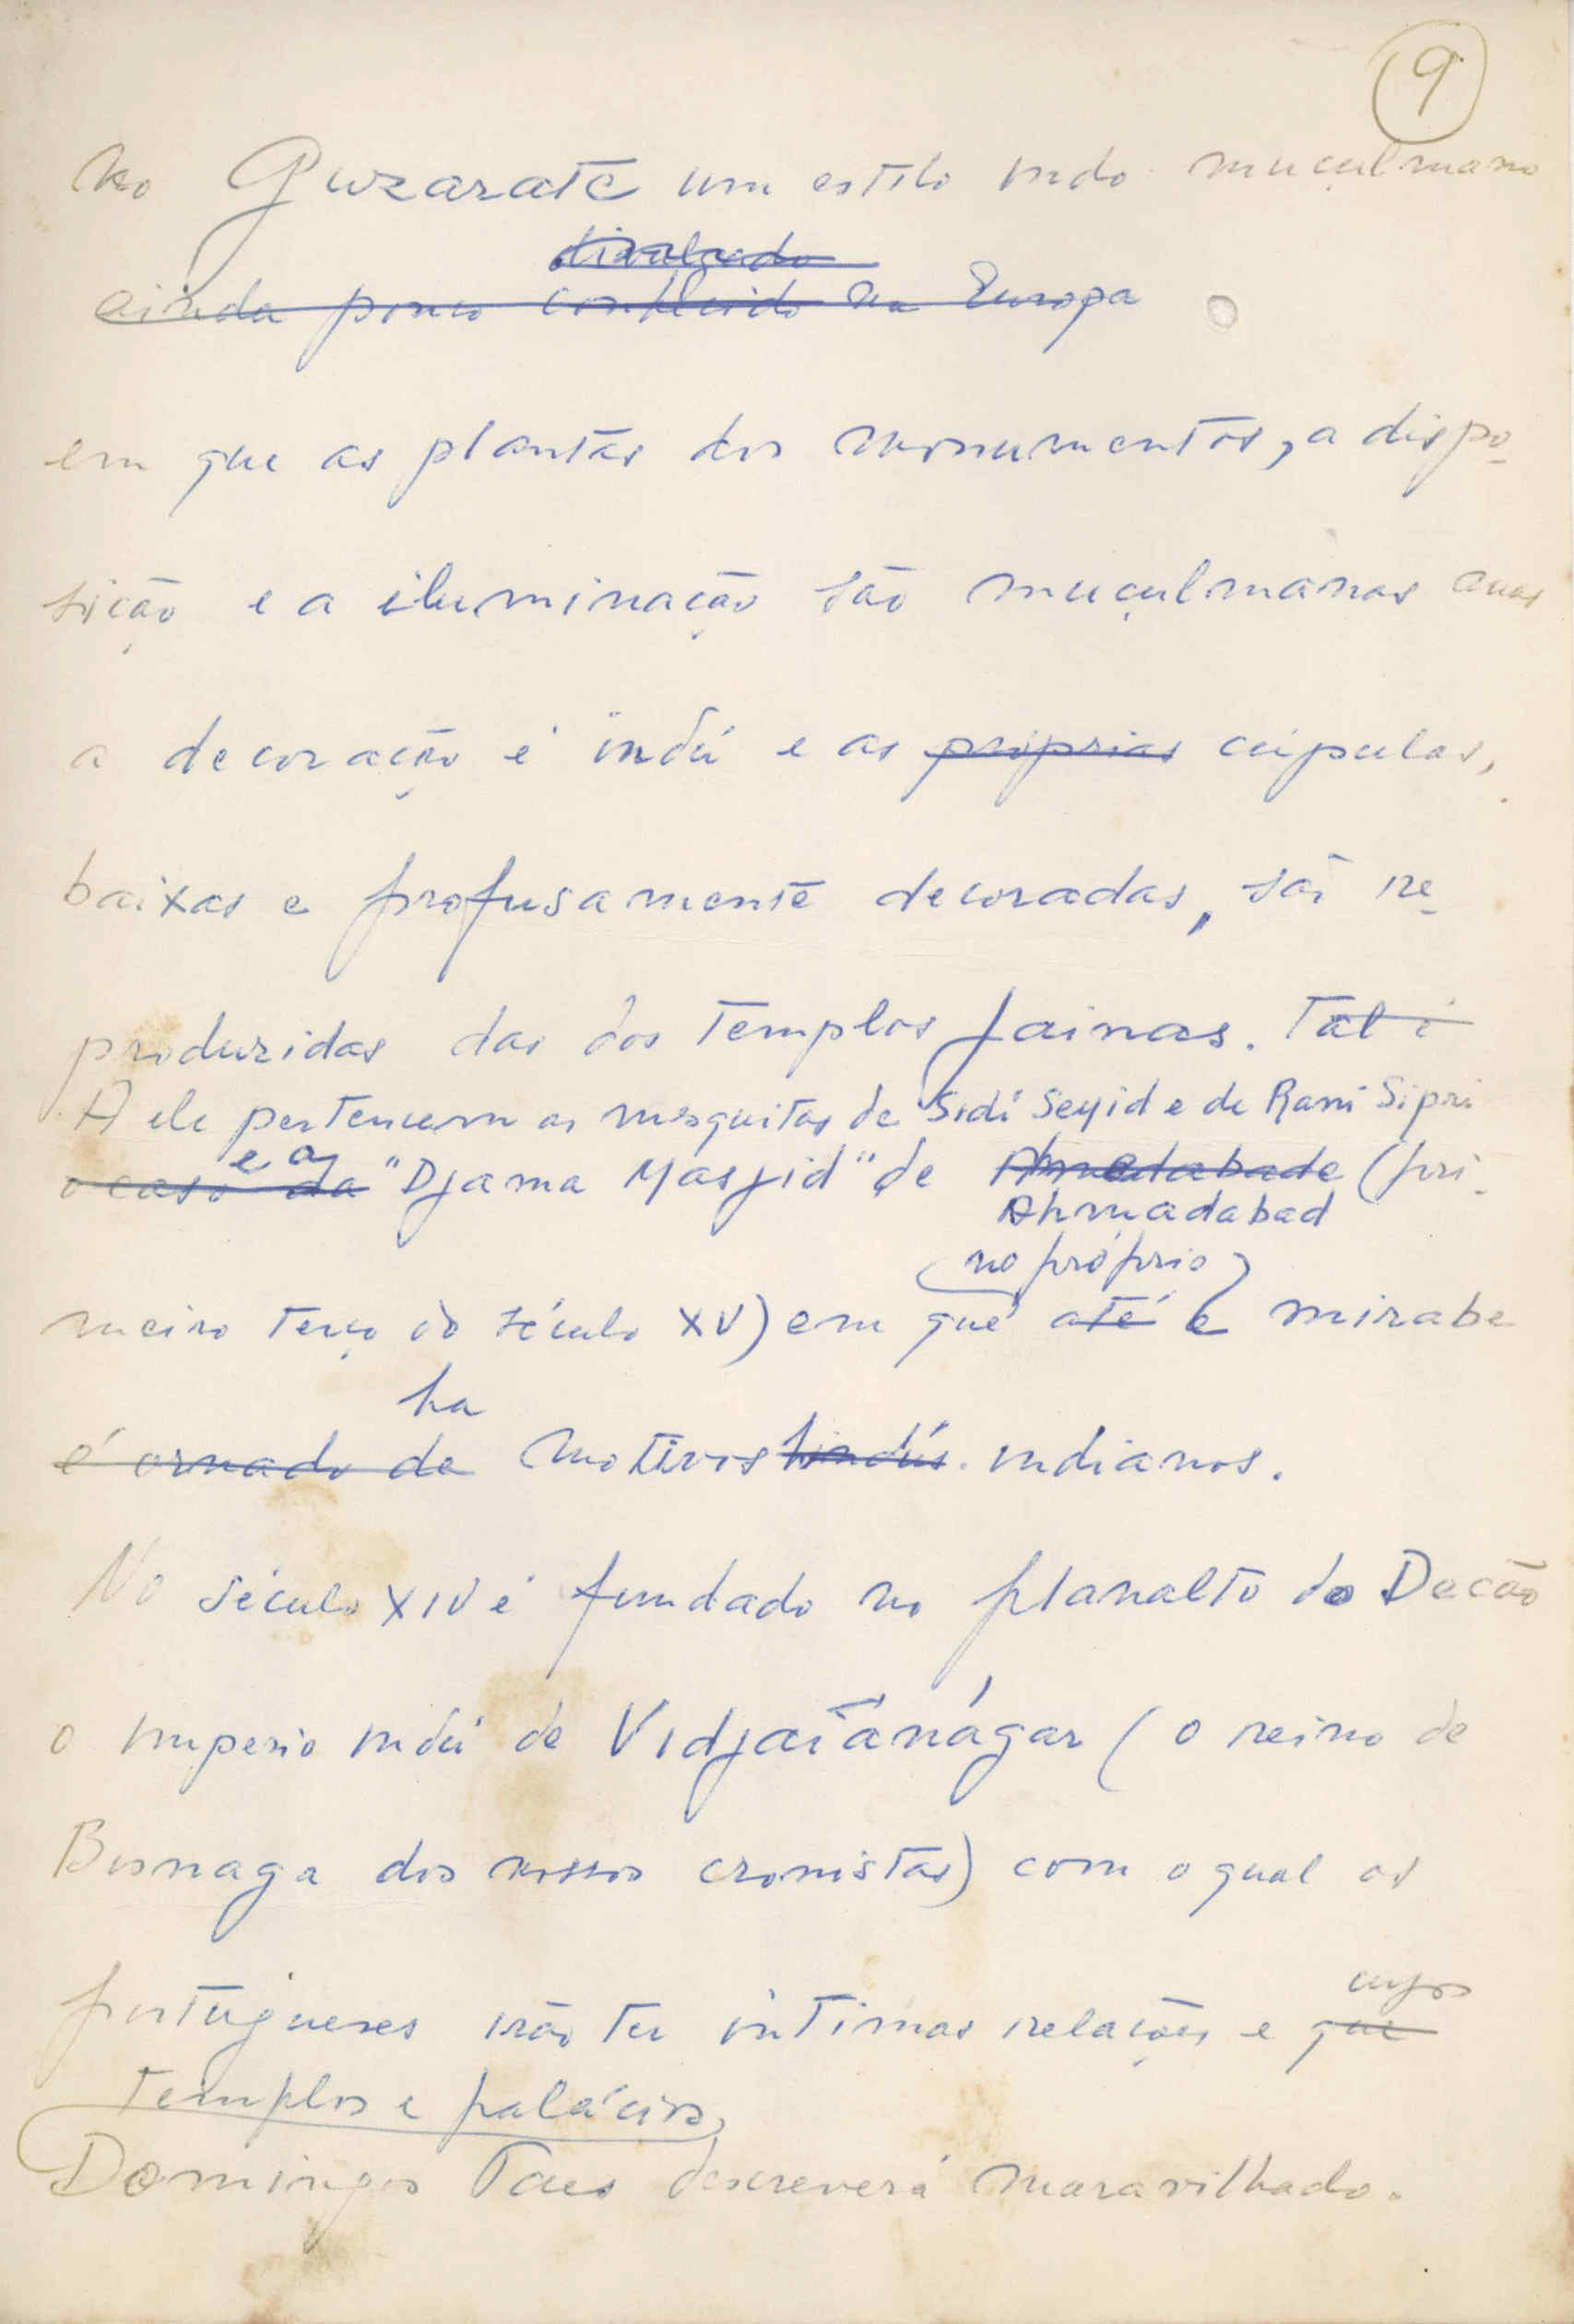 9
no Guzarate um estilo indo muçulmano
divulgado
ainda pouco conhecido na Europa
em que as plantas dos monumentos, a dispo-
sição e a iluminação são muçulmanas mas
a decoração é indú e as próprias cúpulas,
baixas e profusamente decoradas, são re-
produzidas das dos templos jainas. Tal é
A ele pertencem as mesquitas de Sidi Seyid e de Rani Sipri
e a
o caso da "Djama Masjid" de Ahmedabade (pri-
Ahmadabad
no próprio
meiro terço do século XV) em que até o mirabe
ha
é ornado de motivos hindús. indianos.
No século XIV é fundado no planalto do Decão
o imperio indú de Vidjaiánágar (o reino de
Bisnaga dos nossos cronistas) com o qual os
cujos
portugueses irão ter intimas relações e que
templos e palácios
Domingos Paes descreverá maravilhado.